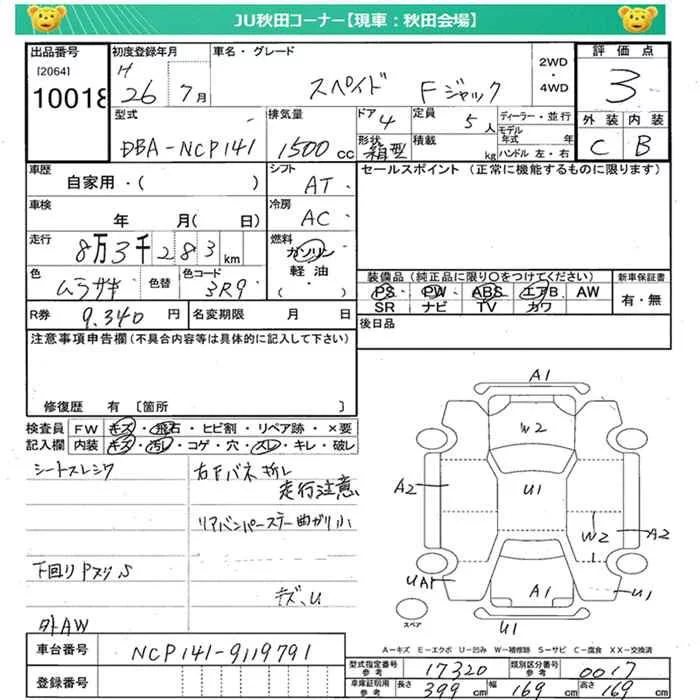 JU秋田コーナー【現車：秋田会場】
出品番号 初度登録年月 車名・グレード 評価点
[2064] H 2WD
10018 26 7月 スペイド Fジャック ・ 4WD 3
型式 排気量 ドア 4 定員 5人 ディーラー・並行 外装 内装
DBA-NCP141 1500cc 形状 箱型 積載 kg モデル年式 年 ハンドル 左・右 C B
車歴 シフト セールスポイント (正常に機能するものに限ります)
自家用・( ) AT
車検 冷房
年 月( 日) AC
走行 燃料
8万3千283km ガソリン・
色 色替 色コード 軽油 装備品(純正品に限り○をつけてください) 新車保証書
ムラサキ 3R9 ( ) PS PW ABS エアB AW 有・無
SR ナビ TV カワ
R券 9.340円 名変期限 月 日 後日品
注意事項申告欄(不具合内容等は具体的に記入して下さい)
修復歴 有 [箇所 ]
検査員 FW キズ・飛石・ヒビ割・リペア跡・×要
記入欄 内装 キズ・汚レ・コゲ・穴・スレ・キレ・破レ
シートスレシワ 右Fバネ折レ
走行注意
リアバンパーステー曲ガリ小
下回りPスリS
キズ、U
外AW
A1
W2
A2 U1
W2 A2
UA1 A1 U1
スペア
U1
A－キズ E－エクボ U－凹み W－補修跡 S－サビ C－腐食 XX－交換済
車台番号 NCP141-9119791
型式指定番号 参考 17320 類別区分番号 参考 0017
登録番号 車庫証明用 参考 長さ 399cm 幅 169cm 高さ 169cm